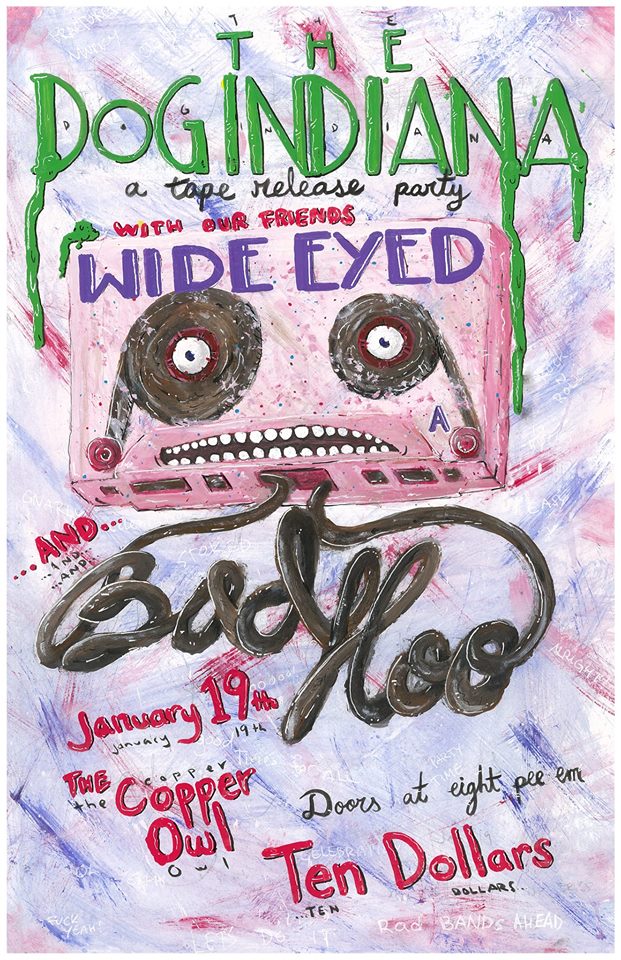 THE
THE
DOGINDIANA
DOGINDIANA
a tape release party
WITH OUR FRIENDS
WIDE EYED
A
...AND...
...AND...
...AND...
Bad Hoo
January 19th
january 19th
THE copper
the Copper
Owl
owl
Doors at eight pee em
Ten Dollars
...TEN DOLLARS...
ALRIGHT
PARTY
TIME
FUCK
YEAH!
LET'S DO IT
Rad BANDS AHEAD